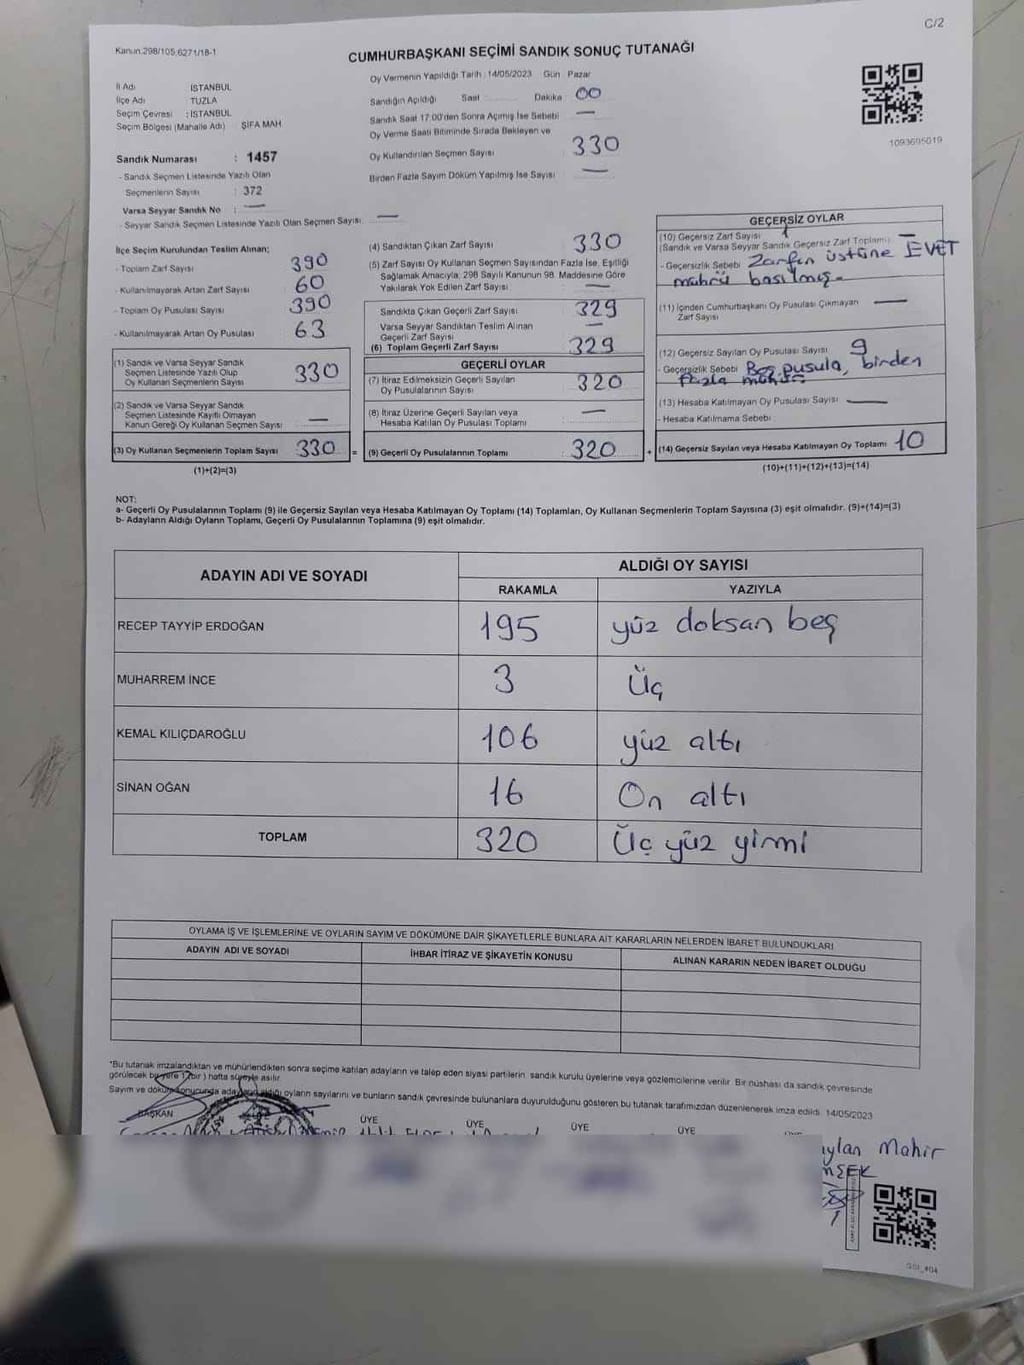 C/2
Kanun:298/105,6271/18-1
CUMHURBAŞKANI SEÇİMİ SANDIK SONUÇ TUTANAĞI
İl Adı : İSTANBUL
İlçe Adı TUZLA
Seçim Çevresi : İSTANBUL
Seçim Bölgesi (Mahalle Adı) ŞİFA MAH
Sandık Numarası : 1457
- Sandık Seçmen Listesinde Yazılı Olan
Seçmenlerin Sayısı : 372
Varsa Seyyar Sandık No : —
- Seyyar Sandık Seçmen Listesinde Yazılı Olan Seçmen Sayısı: —
Oy Vermenin Yapıldığı Tarih : 14/05/2023 Gün Pazar
Sandığın Açıldığı Saat Dakika 00
Sandık Saat 17:00'den Sonra Açılmış İse Sebebi —
Oy Verme Saati Bitiminde Sırada Bekleyen ve
Oy Kullandırılan Seçmen Sayısı 330
Birden Fazla Sayım Döküm Yapılmış İse Sayısı —
1093695019
İlçe Seçim Kurulundan Teslim Alınan;
- Toplam Zarf Sayısı 390
- Kullanılmayarak Artan Zarf Sayısı 60
- Toplam Oy Pusulası Sayısı 390
- Kullanılmayarak Artan Oy Pusulası 63
(1) Sandık ve Varsa Seyyar Sandık
Seçmen Listesinde Yazılı Olup
Oy Kullanan Seçmenlerin Sayısı 330
(2) Sandık ve Varsa Seyyar Sandık
Seçmen Listesinde Kayıtlı Olmayan
Kanun Gereği Oy Kullanan Seçmen Sayısı —
(3) Oy Kullanan Seçmenlerin Toplam Sayısı 330 =
(1)+(2)=(3)
(4) Sandıktan Çıkan Zarf Sayısı 330
(5) Zarf Sayısı Oy Kullanan Seçmen Sayısından Fazla İse, Eşitliği
Sağlamak Amacıyla; 298 Sayılı Kanunun 98. Maddesine Göre
Yakılarak Yok Edilen Zarf Sayısı —
Sandıkta Çıkan Geçerli Zarf Sayısı 329
Varsa Seyyar Sandıktan Teslim Alınan
Geçerli Zarf Sayısı —
(6) Toplam Geçerli Zarf Sayısı 329
GEÇERLİ OYLAR
(7) İtiraz Edilmeksizin Geçerli Sayılan
Oy Pusulalarının Sayısı 320
(8) İtiraz Üzerine Geçerli Sayılan veya
Hesaba Katılan Oy Pusulası Toplamı —
(9) Geçerli Oy Pusulalarının Toplamı 320 +
GEÇERSİZ OYLAR
(10) Geçersiz Zarf Sayısı 1
(Sandık ve Varsa Seyyar Sandık Geçersiz Zarf Toplamı) —
- Geçersizlik Sebebi Zarfın üstüne EVET
mührü basılmış.
(11) İçinden Cumhurbaşkanı Oy Pusulası Çıkmayan —
Zarf Sayısı
(12) Geçersiz Sayılan Oy Pusulası Sayısı 9
- Geçersizlik Sebebi Boş pusula, birden
fazla mühür
(13) Hesaba Katılmayan Oy Pusulası Sayısı —
- Hesaba Katılmama Sebebi
(14) Geçersiz Sayılan veya Hesaba Katılmayan Oy Toplamı 10
(10)+(11)+(12)+(13)=(14)
NOT:
a- Geçerli Oy Pusulalarının Toplamı (9) ile Geçersiz Sayılan veya Hesaba Katılmayan Oy Toplamı (14) Toplamları, Oy Kullanan Seçmenlerin Toplam Sayısına (3) eşit olmalıdır. (9)+(14)=(3)
b- Adayların Aldığı Oyların Toplamı, Geçerli Oy Pusulalarının Toplamına (9) eşit olmalıdır.
ADAYIN ADI VE SOYADI
ALDIĞI OY SAYISI
RAKAMLA YAZIYLA
RECEP TAYYİP ERDOĞAN 195 yüz doksan beş
MUHARREM İNCE 3 Üç
KEMAL KILIÇDAROĞLU 106 yüz altı
SİNAN OĞAN 16 On altı
TOPLAM 320 Üç yüz yirmi
OYLAMA İŞ VE İŞLEMLERİNE VE OYLARIN SAYIM VE DÖKÜMÜNE DAİR ŞİKAYETLERLE BUNLARA AİT KARARLARIN NELERDEN İBARET BULUNDUKLARI
ADAYIN ADI VE SOYADI İHBAR İTİRAZ VE ŞİKAYETİN KONUSU ALINAN KARARIN NEDEN İBARET OLDUĞU
*Bu tutanak imzalandıktan ve mühürlendikten sonra seçime katılan adayların ve talep eden siyasi partilerin, sandık kurulu üyelerine veya gözlemcilerine verilir. Bir nüshası da sandık çevresinde
görülecek bir yere 1 (bir) hafta süreyle asılır.
Sayım ve döküm sonucunda adayların aldığı oyların sayılarını ve bunların sandık çevresinde bulunanlara duyurulduğunu gösteren bu tutanak tarafımızdan düzenlenerek imza edildi. 14/05/2023
BAŞKAN ÜYE ÜYE ÜYE ÜYE
Mahir